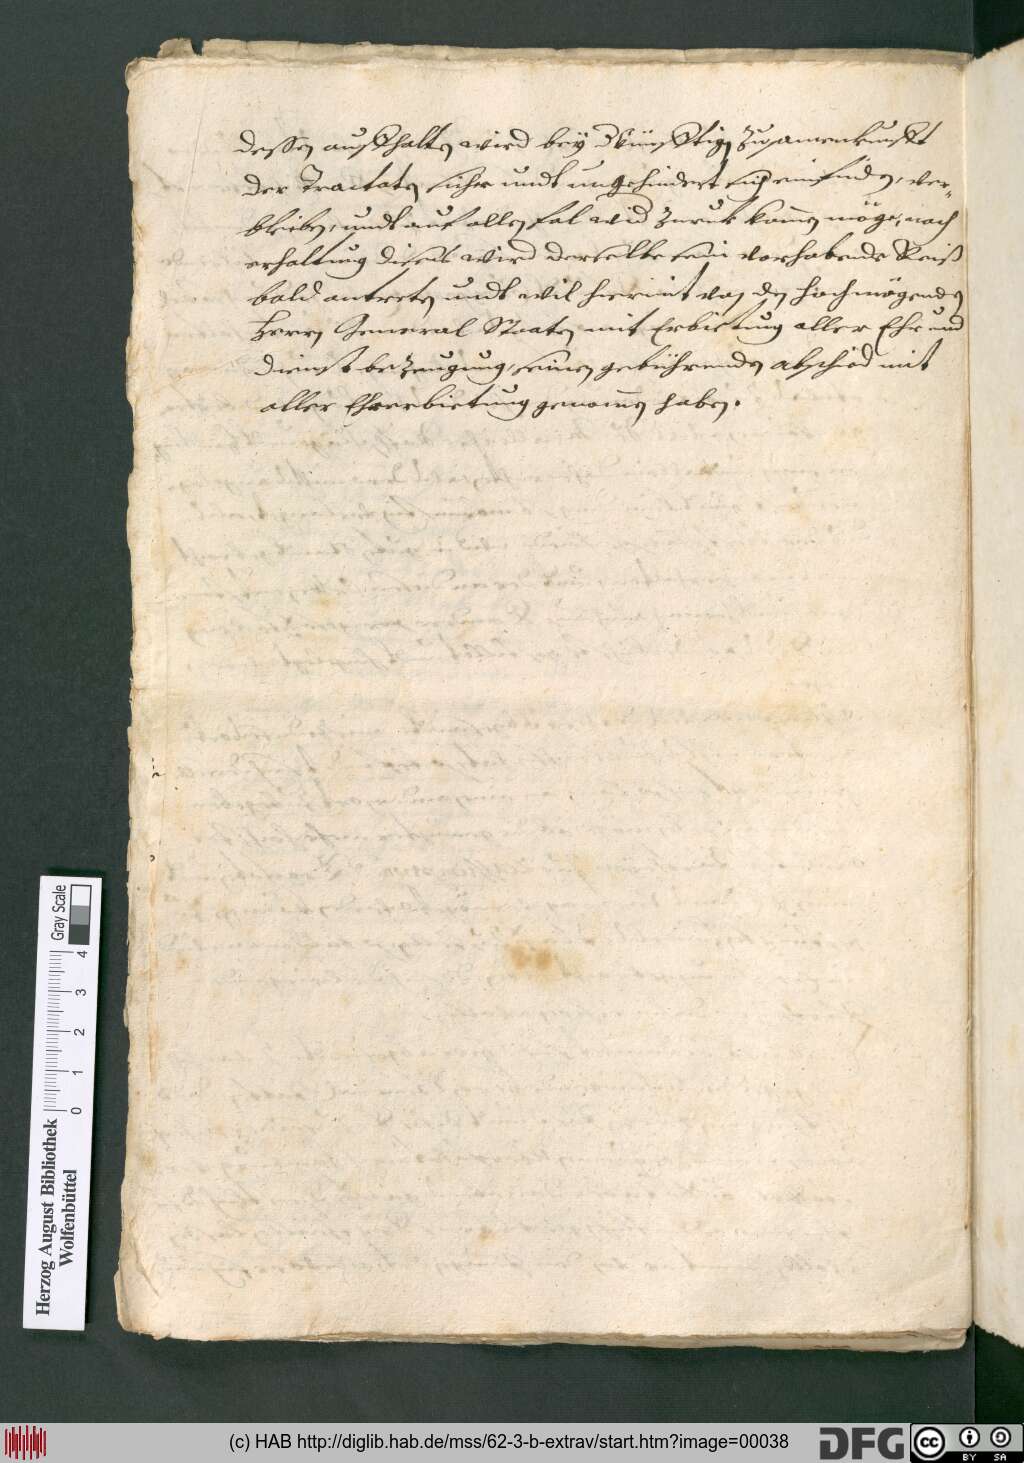 dessen aufhalten wird bey künfftigen Zusamenkunfft
der Tractaten sicher undt ungehindert sich einfinden, ver-
bleiben, undt auf allen fal wid Zuruk komen möge, nach
erhaltung dises wird derselbe sein vorhabende Reiß
bald antreten undt wil hiermit von den hochmögenden
Herrn General Staaten mit Erbietung aller Ehr und
dienst bezeugung, seinen gebührenden abschid mit
aller Ehrerbietung genomen haben.
Herzog August Bibliothek
Wolfenbüttel
0 1 2 3 4
Gray Scale
(c) HAB http://diglib.hab.de/mss/62-3-b-extrav/start.htm?image=00038
DFG
cc BY SA